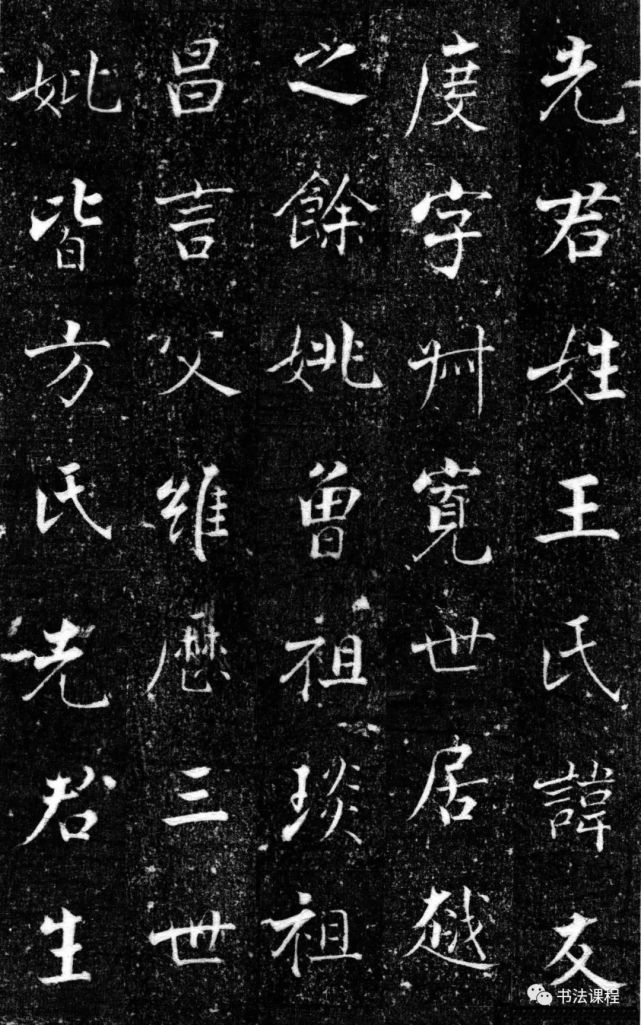 先君姓王氏諱友
度字寬世居越
之餘姚曾祖琰祖
昌言父維歷三世
妣皆方氏先君生
书法课程